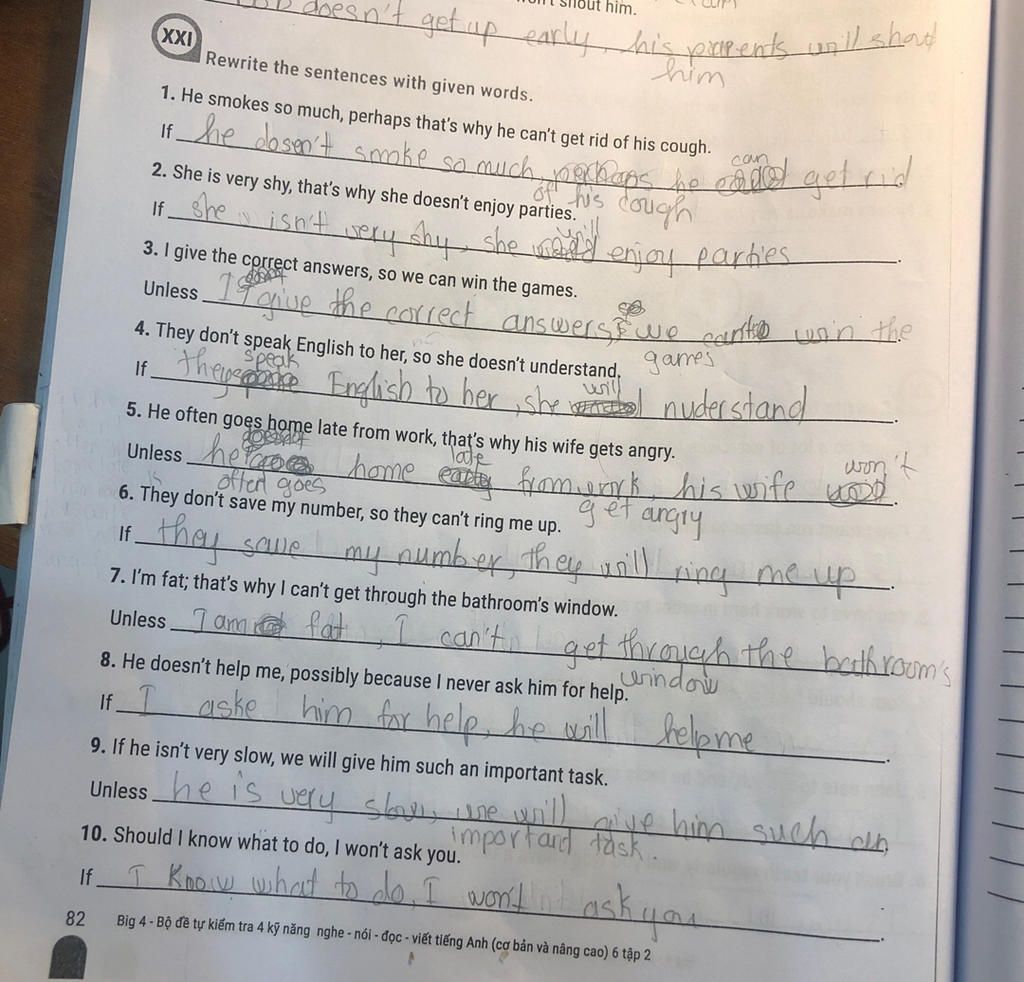 n't shout him.
doesn't get up early, his parents will shout
him
XXI
Rewrite the sentences with given words.
1. He smokes so much, perhaps that's why he can't get rid of his cough.
If he dosen't smoke so much, perhaps he can get rid
of his cough
2. She is very shy, that's why she doesn't enjoy parties.
If she isn't very shy, she will enjoy parties.
3. I give the correct answers, so we can win the games.
Unless I give the correct answers, we can't win the
games
4. They don't speak English to her, so she doesn't understand.
If they speak English to her, she will nuderstand.
5. He often goes home late from work, that's why his wife gets angry.
Unless he often goes home late from work, his wife won't.
get angry
6. They don't save my number, so they can't ring me up.
If they save my number, they will ring me up.
7. I'm fat; that's why I can't get through the bathroom's window.
Unless I am fat, I can't get through the bathroom's
window
8. He doesn't help me, possibly because I never ask him for help.
If I aske him for help, he will help me.
9. If he isn't very slow, we will give him such an important task.
Unless he is very slow, we will give him such an
important task.
10. Should I know what to do, I won't ask you.
If I know what to do, I won't ask you.
82 Big 4 - Bộ đề tự kiểm tra 4 kỹ năng nghe - nói - đọc - viết tiếng Anh (cơ bản và nâng cao) 6 tập 2